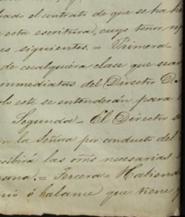 el contrato de que se ha h
esta escritura, cuyo ten
es siguientes = Primera
de cualquiera clase que sean
inmediatas del Director D.
lo este se entenderán para
Segunda = El Director
la Señora por conducto del
las oms necesarias
= Tercera = Haviend
ó balance que tiene